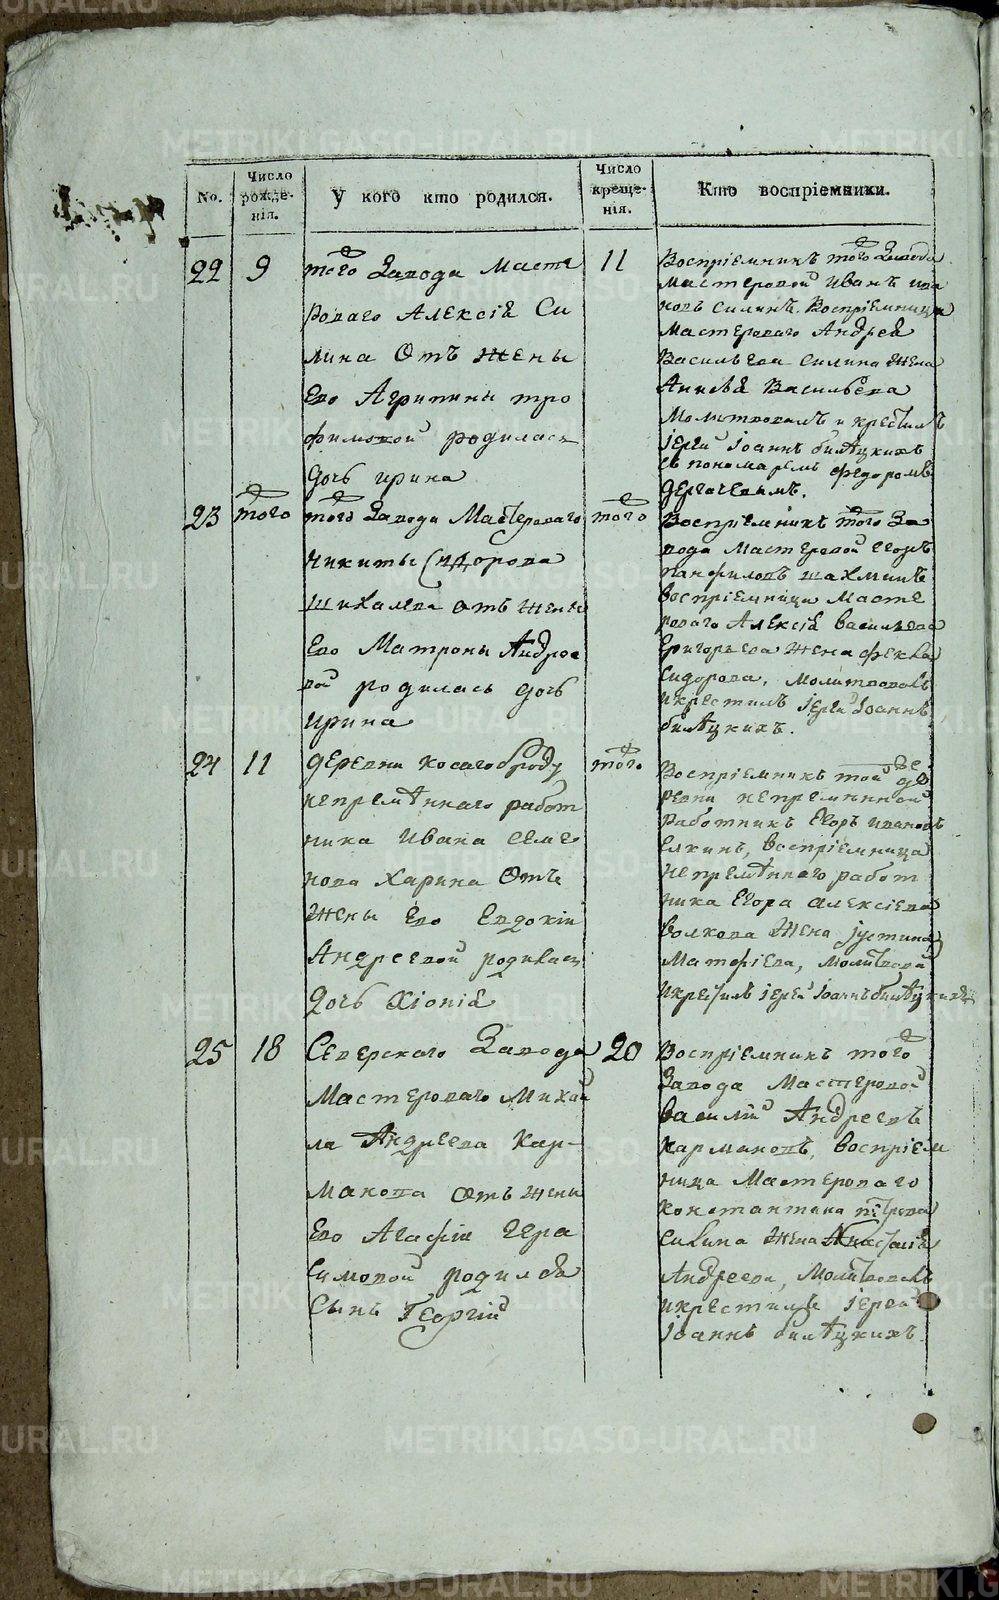 No.
Число рожде-
нія.
У кого кто родился.
Число
креще-
нія.
Кто воспріемники.
22
9
того Завода Масте
роваго Алексія Си
лина Отъ жены
Его Агрипины тро
фимовой родилась
дочь ирина
11
Воспріемникъ того Завода
мастеровой иванъ ива
новъ силинъ. Воспріемница
мастероваго Андрея
Васильева силина жена
Васильева
Молитвовалъ и крестилъ
іерей Іоаннъ билѣцкихъ
съ пономаремъ федоромъ
дергачевымъ.
23
того
того Завода Мастероваго
никиты Сидорова
шихалева отъ жены
Его Матроны Андрее
вой родилась дочь
ирина
того
Воспріемникъ того За
вода Мастеровой
панфиловъ шахминъ
воспріемница Масте
роваго Алексія васильева
Григорьева жена фекла
Сидорова, молитвовалъ
и крестилъ іерей Іоаннъ
билѣцкихъ.
24
11
деревни косагоброду
непремѣннаго работ
ника ивана семе
нова Харина Отъ
жены Его Евдокіи
Андреевой родилась
дочь Хіонія
того
Воспріемникъ той де
ревни непремѣнной
работникъ Егоръ ивановъ
елкинъ, воспріемница
непремѣннаго работ
ника Егора алексіева
волкова жена іустина
Матфіева, молитвовалъ
и крестилъ іерей Іоаннъ билѣцкихъ
25
18
Северскаго Завода
Мастероваго Михаи
ла Андреева Кар-
макова отъ жены
Его Агафіи Гера
симовой родился
сынъ Георгій
20
Воспріемникъ того
Завода Мастеровой
василій Андреевъ
кармаковъ, воспріем
ница Мастероваго
константина петрова
силина жена Анастасія
Андреева, Молитвовалъ
и крестилъ іерей
Іоаннъ билѣцкихъ.
METRIKI.GASO-URAL.RU